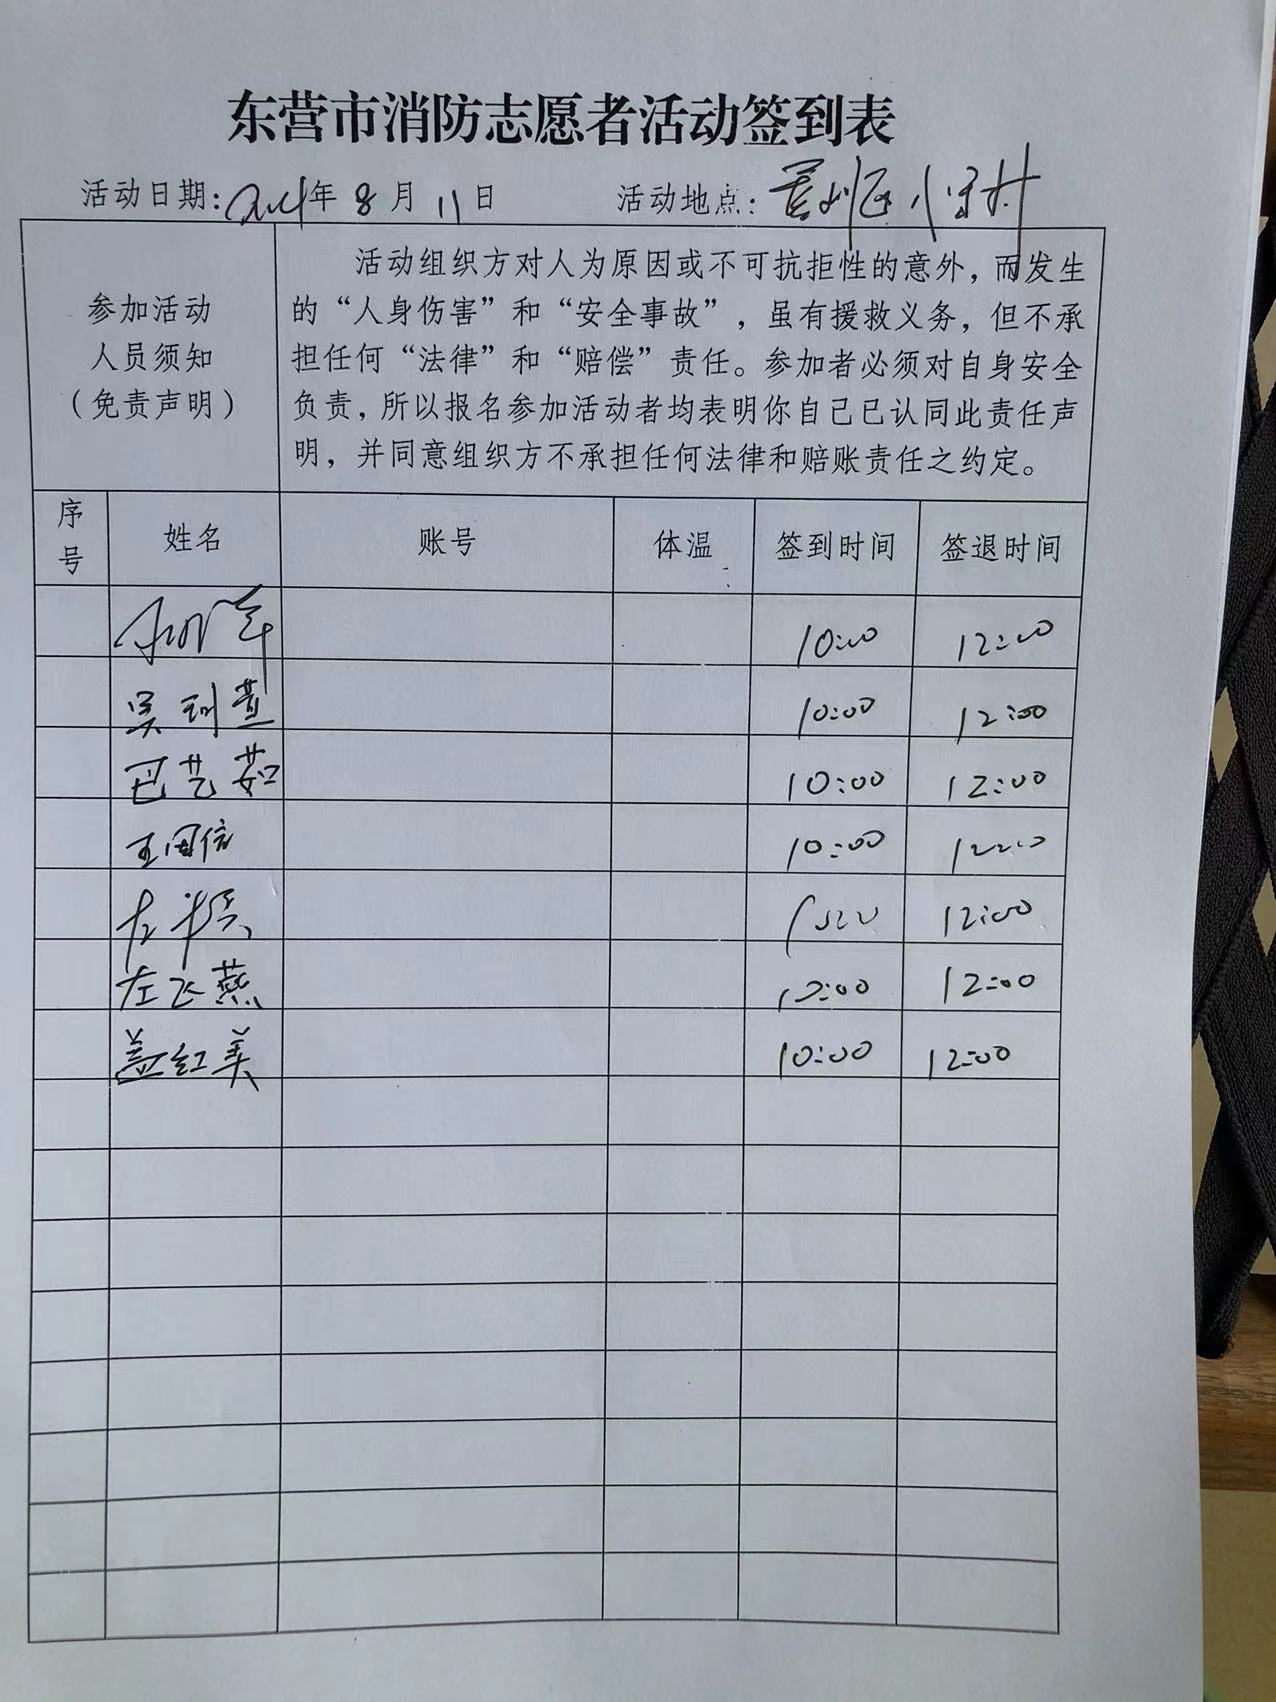 东营市消防志愿者活动签到表
活动日期:2024年8月11日 活动地点:
参加活动
人员须知
(免责声明)
活动组织方对人为原因或不可抗拒性的意外,而发生
的“人身伤害”和“安全事故”,虽有援救义务,但不承
担任何“法律”和“赔偿”责任。参加者必须对自身安全
负责,所以报名参加活动者均表明你自己已认同此责任声
明,并同意组织方不承担任何法律和赔账责任之约定。
序号 姓名 账号 体温 签到时间 签退时间
10:00 12:00
10:00 12:00
巴艺茹 10:00 12:00
王国信 10:00 12:00
12:00
左飞燕 10:00 12:00
盖红美 10:00 12:00